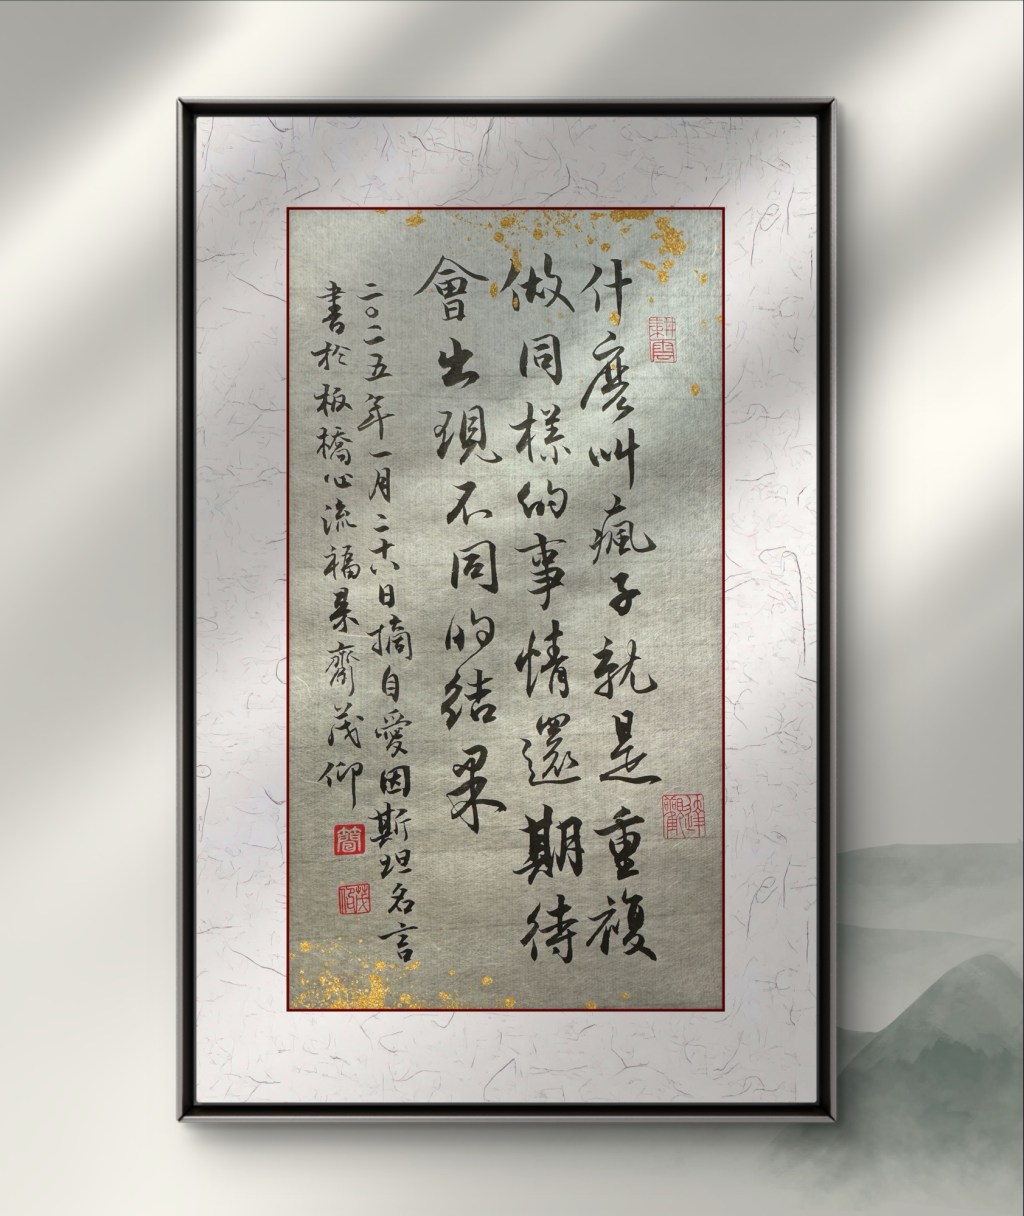 什麼叫瘋子就是重複
做同樣的事情還期待
會出現不同的結果
二〇二五年一月二十六日摘自愛因斯坦名言
書於板橋心流福果齋茂仰